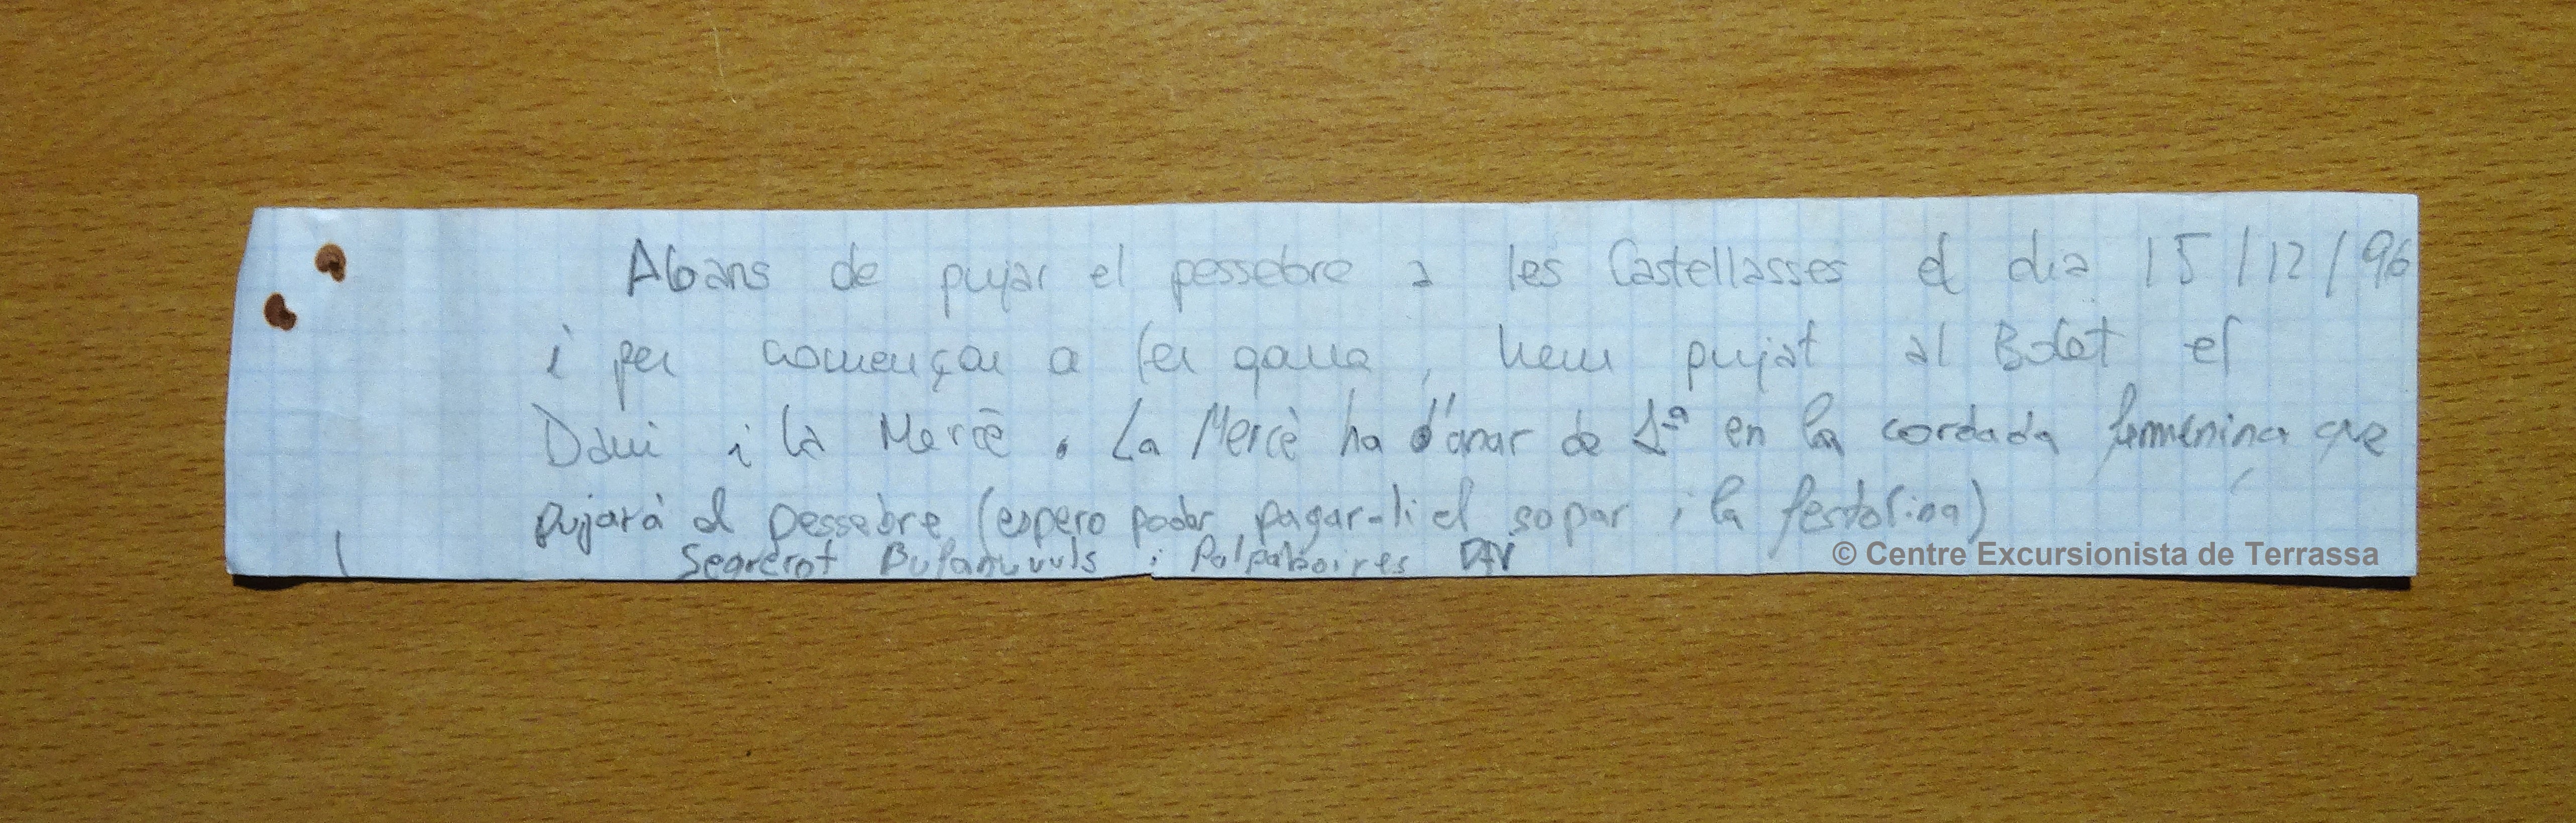 Abans de pujar el pessebre a les Castellasses el dia 15/12/96
i per començar a fer gana, hem pujat al Bolet el
Dani i la Mercè. La Mercè ha d'anar de 1ª en la cordada femenina que
pujarà el pessebre (espero poder pagar-li el sopar i la festolina)
Bufanuvuls i Palpaboires
© Centre Excursionista de Terrassa